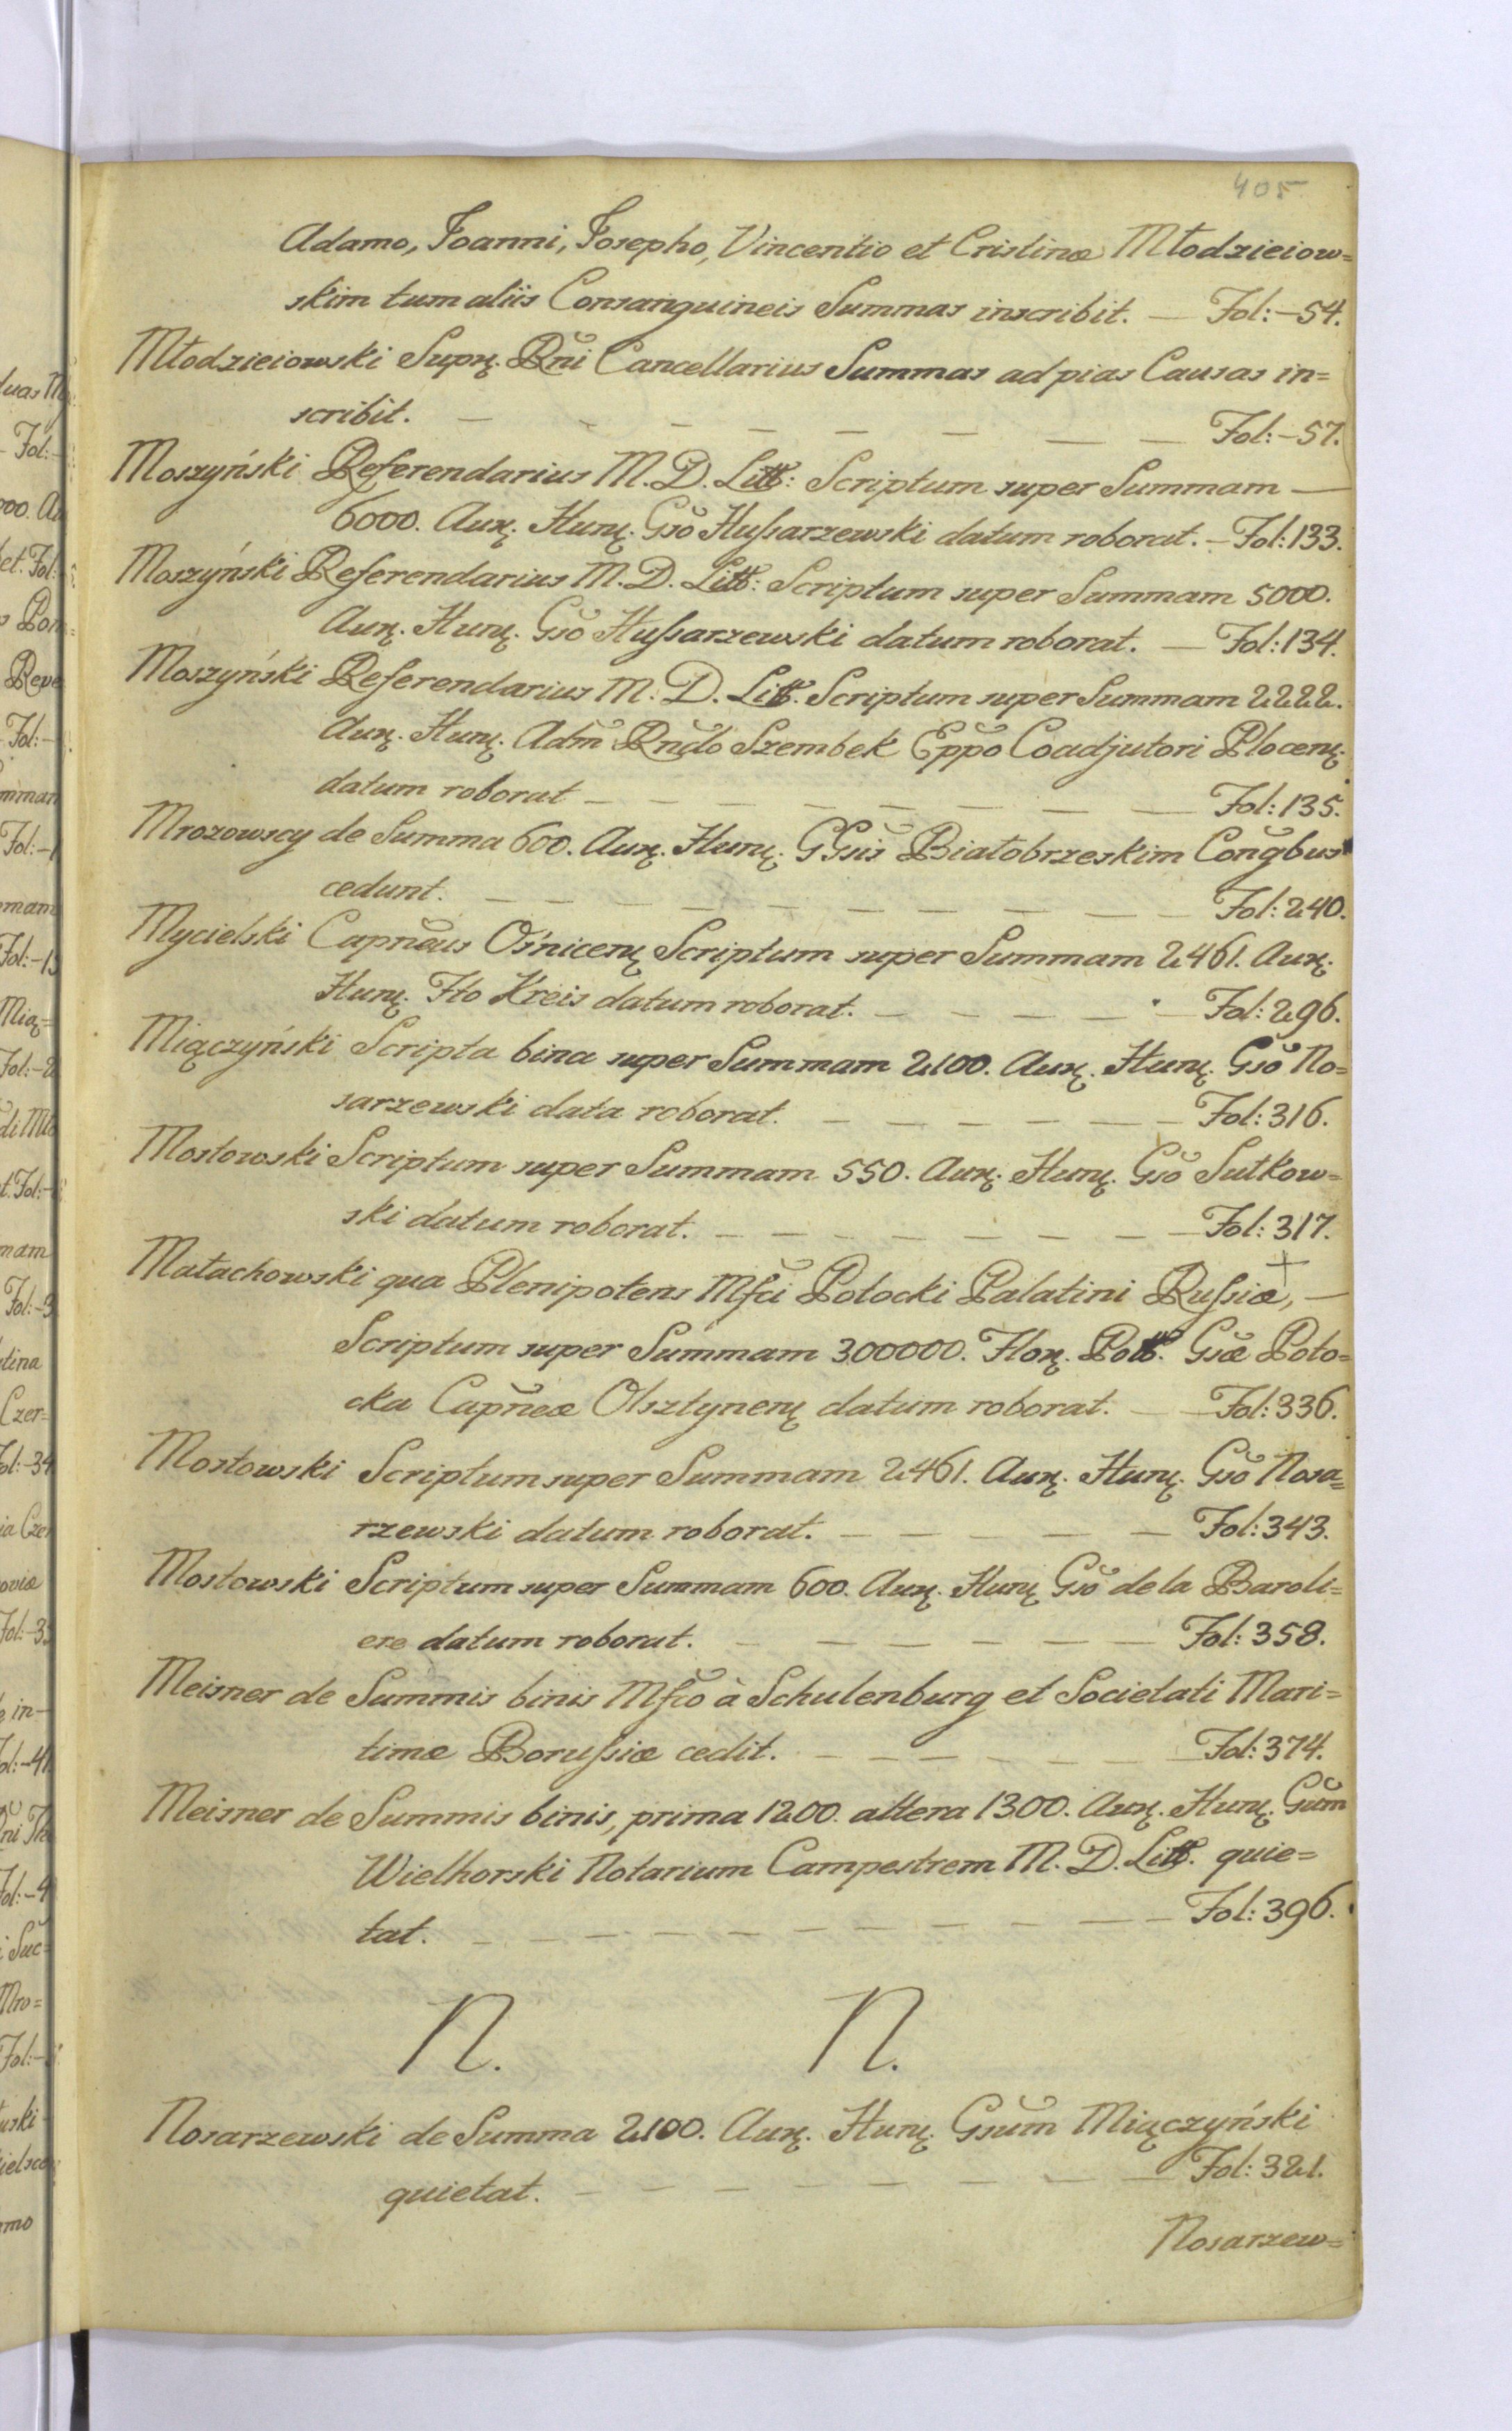 405
Adamo, Joanni, Josepho, Vincentio et Cristinæ Młodzieiow=
skim tum aliis Consanguineis Summas inscribit. — Fol: 54.
Młodzieiowski Suprę. Rňi Cancellarius Summas ad pias Causas in=
scribit. — — — — — — — Fol: 57.
Moszyński Referendarius M. D. Litt: Scriptum super Summam —
6000. Aurę. Hunę. Gsŏ Hussarzewski datum roborat. — Fol: 133.
Moszyński Referendarius M. D. Litt: Scriptum super Summam 5000.
Aurę. Hunę. Gsŏ Hussarzewski datum roborat. — Fol: 134.
Moszyński Referendarius M. D. Litt. Scriptum super Summam 2222.
Aurę. Hunę. Adm̆ Rnďo Szembek Epp̆o Coadjutori Plocenę.
datum roborat — — — — — — — Fol: 135.
Mrozowscy de Summa 600. Aurę. Hunę. GGsis̆ Białobrzeskim Conğbus
cedunt. — — — — — — — Fol: 240.
Mycielski Capnĕus Ośnicenę Scriptum super Summam 2461. Aurę.
Hunę. Ftto Kreis datum roborat. — — — — — Fol: 296.
Miączyński Scripta bina super Summam 2100. Aurę. Hunę. Gsŏ No=
sarzewski data roborat. — — — — — — Fol: 316.
Mostowski Scriptum super Summam 550. Aurę. Hunę. Gsŏ Sutkow=
ski datum roborat. — — — — — — — Fol: 317.
Małachowski qua Plenipotens Mfči Potocki Palatini Russiæ, —
Scriptum super Summam 300000. Florę. Poll. Gsæ̆ Poto=
cka Capn̆eæ Olsztynenę datum roborat. — Fol: 336.
Mostowski Scriptum super Summam 2461. Aurę. Hunę. Gsŏ Nosa=
rzewski datum roborat. — — — — — Fol: 343.
Mostowski Scriptum super Summam 600. Aurę. Hunę Gsŏ de la Baroli=
ere datum roborat. — — — — — — Fol: 358.
Meisner de Summis binis Mfčo à Schulenburg et Societati Mari=
timæ Borussiæ cedit. — — — — — — Fol: 374.
Meisner de Summis binis, prima 1200. altera 1300. Aurę. Hunę. Gsŭm
Wielhorski Notarium Campestrem M. D. Litt. quie=
tat. — — — — — — — Fol: 396.
N. N.
Nosarzewski de Summa 2100. Aurę. Hunę. Gsŭm Miączyński
quietat. — — — — — — — Fol: 321.
Nosarzew=